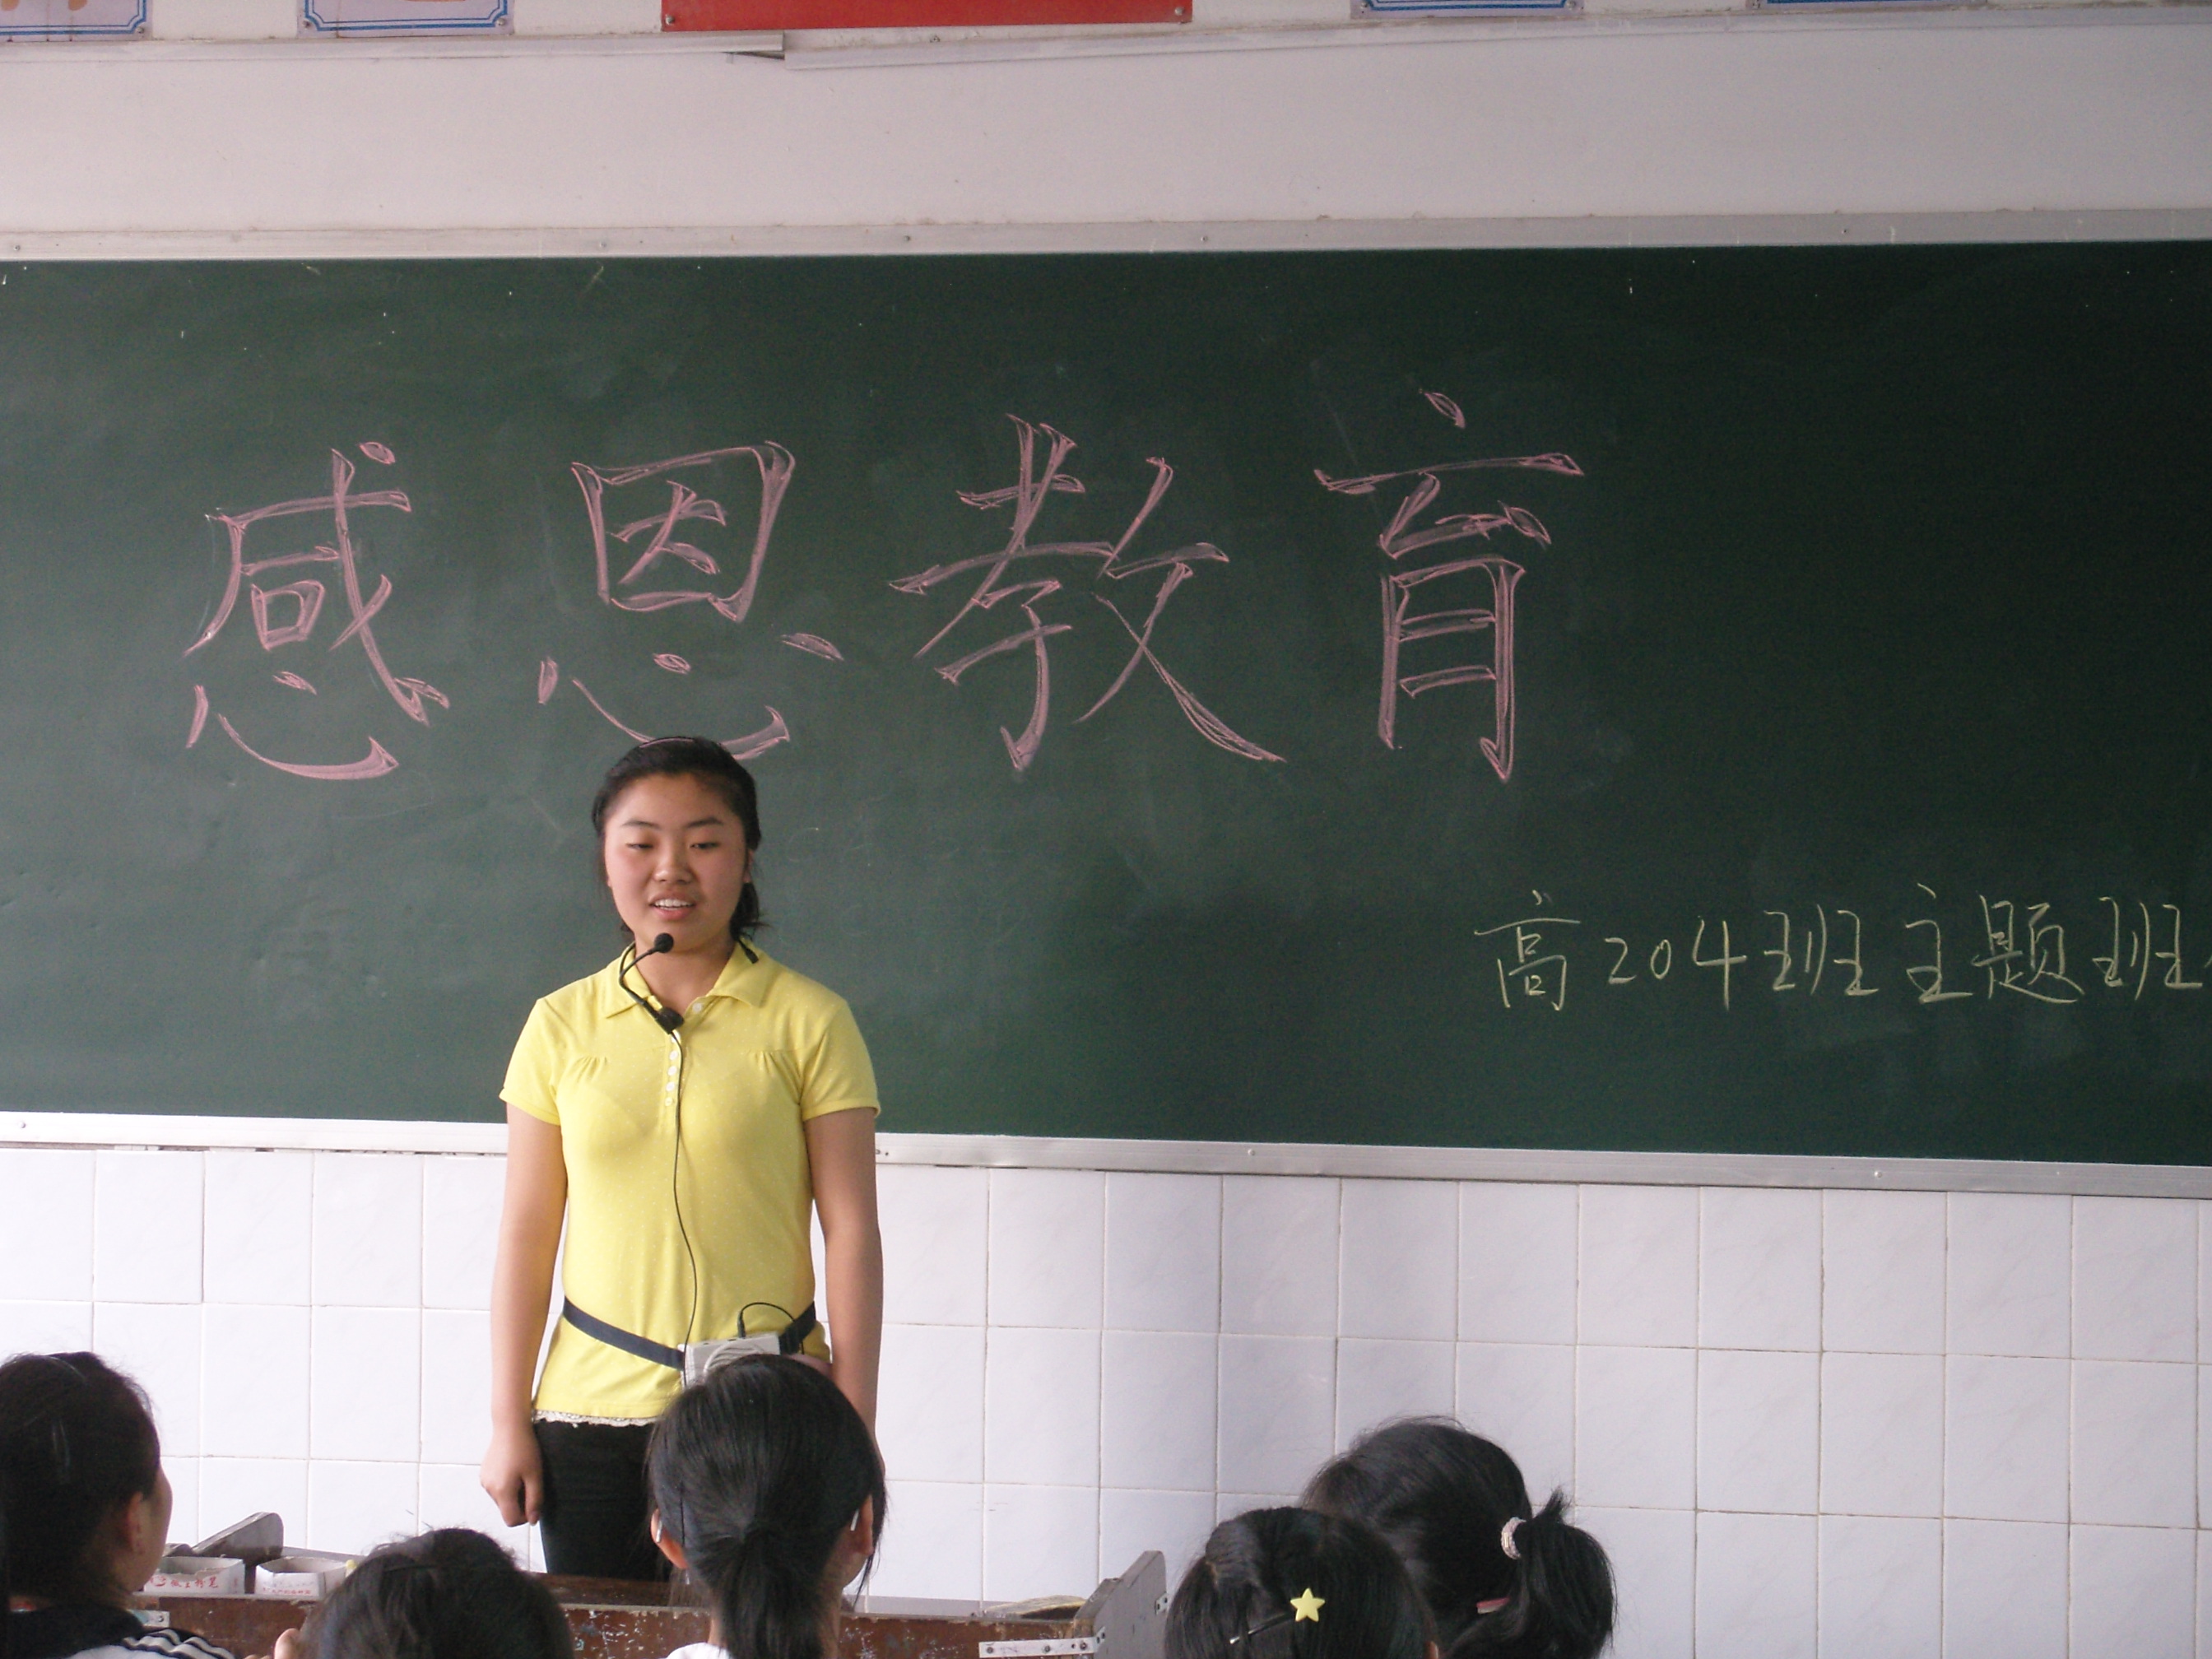 感恩教育
高204班主题班